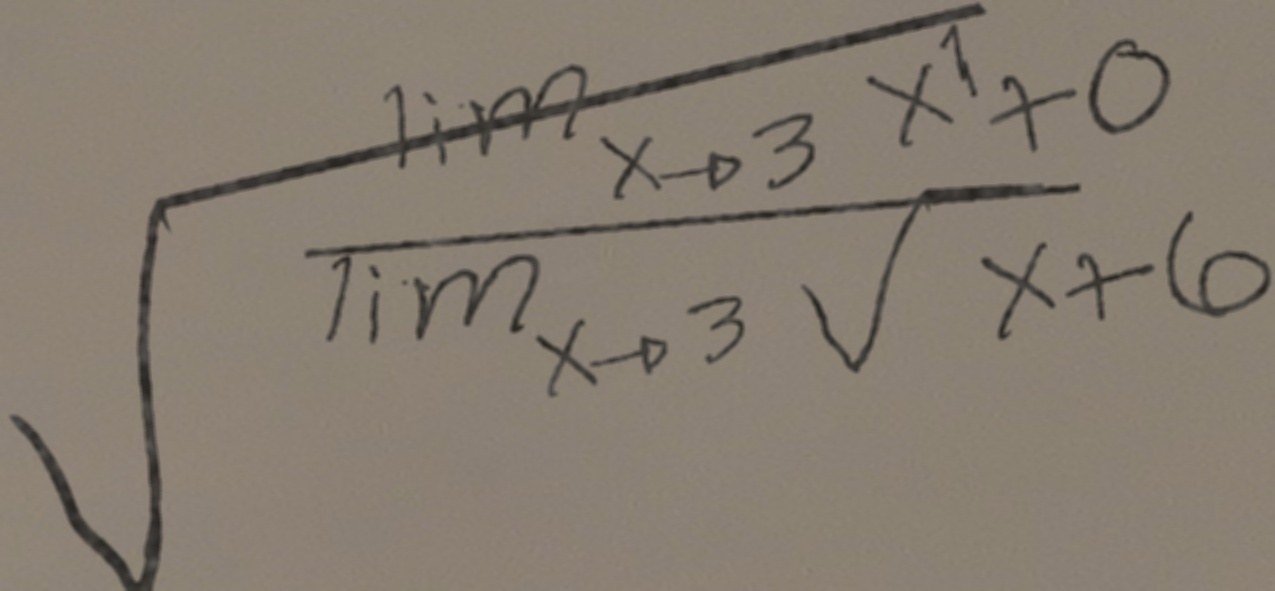 √
lim x→3 x¹+0
lim x→3 √x+6